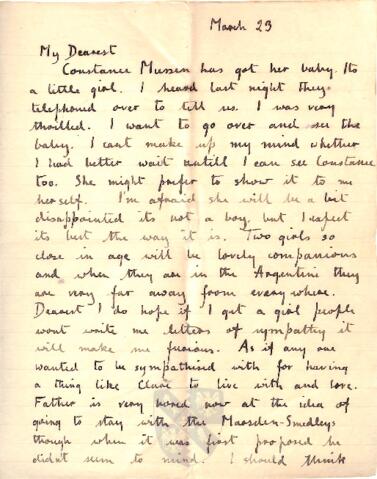 March 23
My Dearest
Constance Mussen has got her baby. Its
a little girl. I heard last night they
telephoned over to tell us. I was very
thrilled. I want to go over and see the
baby. I cant make up my mind whether
I had better wait untill I can see Constance
too. She might prefer to show it to me
herself. I'm afraid she will be a bit
disappointed its not a boy, but I expect
its best the way it is. Two girls so
close in age will be lovely companions
and when they are in the Argentine they
are very far away from everywhere.
Dearest I do hope if I get a girl people
wont write me letters of sympathy it
will make me furious. As if any one
wanted to be sympathised with for having
a thing like Clare to live with and love.
Father is very bored now at the idea of
going to stay with the Marsden-Smedleys
though when it was first proposed he
didnt seem to mind. I should think